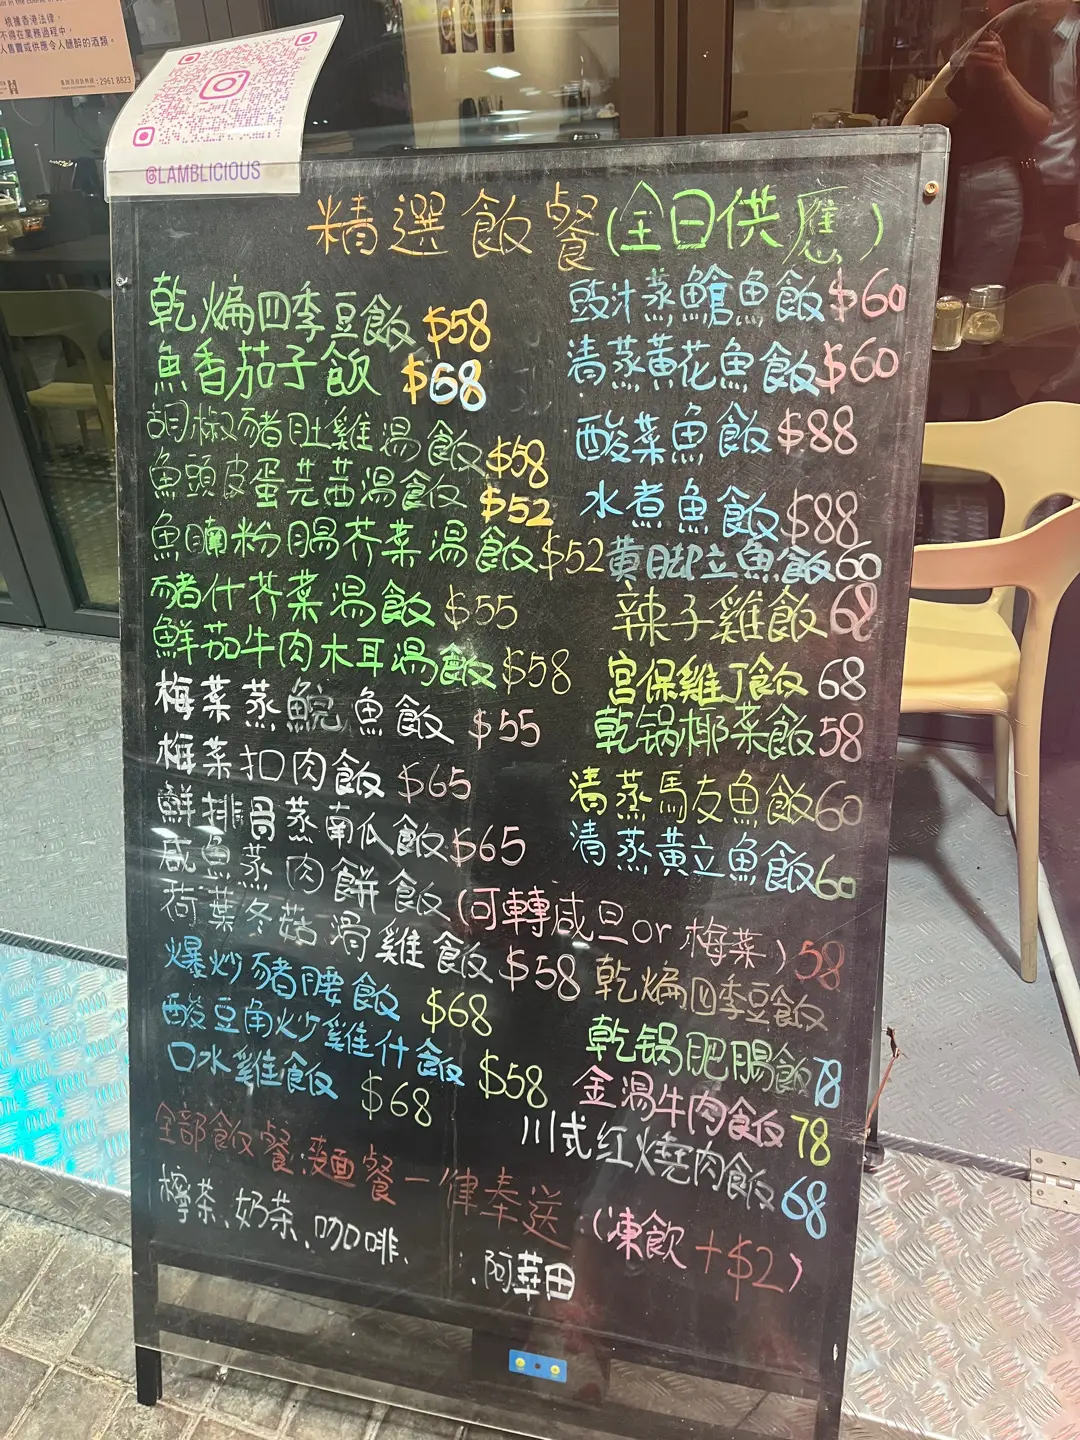 根據香港法律，
不得在業務過程中，
人售賣或供應令人醺醉的酒類。
2961 8823
@LAMBLICIOUS
精選飯餐(全日供應)
乾煸四季豆飯 $58
魚香茄子飯 $68
胡椒豬肚雞湯飯 $58
魚頭皮蛋芫茜湯飯 $52
魚腩粉腸芥菜湯飯 $52
豬什芥菜湯飯 $55
鮮茄牛肉木耳湯飯 $58
梅菜蒸鯇魚飯 $55
梅菜扣肉飯 $65
鮮排骨蒸南瓜飯 $65
咸魚蒸肉餅飯(可轉咸旦or梅菜) 58
荷葉冬菇滑雞飯 $58
爆炒豬腰飯 $68
酸豆角炒雞什飯 $58
口水雞飯 $68
豉汁蒸鯧魚飯 $60
清蒸黃花魚飯 $60
酸菜魚飯 $88
水煮魚飯 $88
黃脚立魚飯 60
辣子雞飯 68
宮保雞丁飯 68
乾锅椰菜飯 58
清蒸馬友魚飯 60
清蒸黃立魚飯 60
乾煸四季豆飯
乾锅肥腸飯 78
金湯牛肉飯 78
川式红燒肉飯 68
全部飯餐.麵餐一律奉送
檸茶、奶茶、咖啡、阿華田
(凍飲+$2)